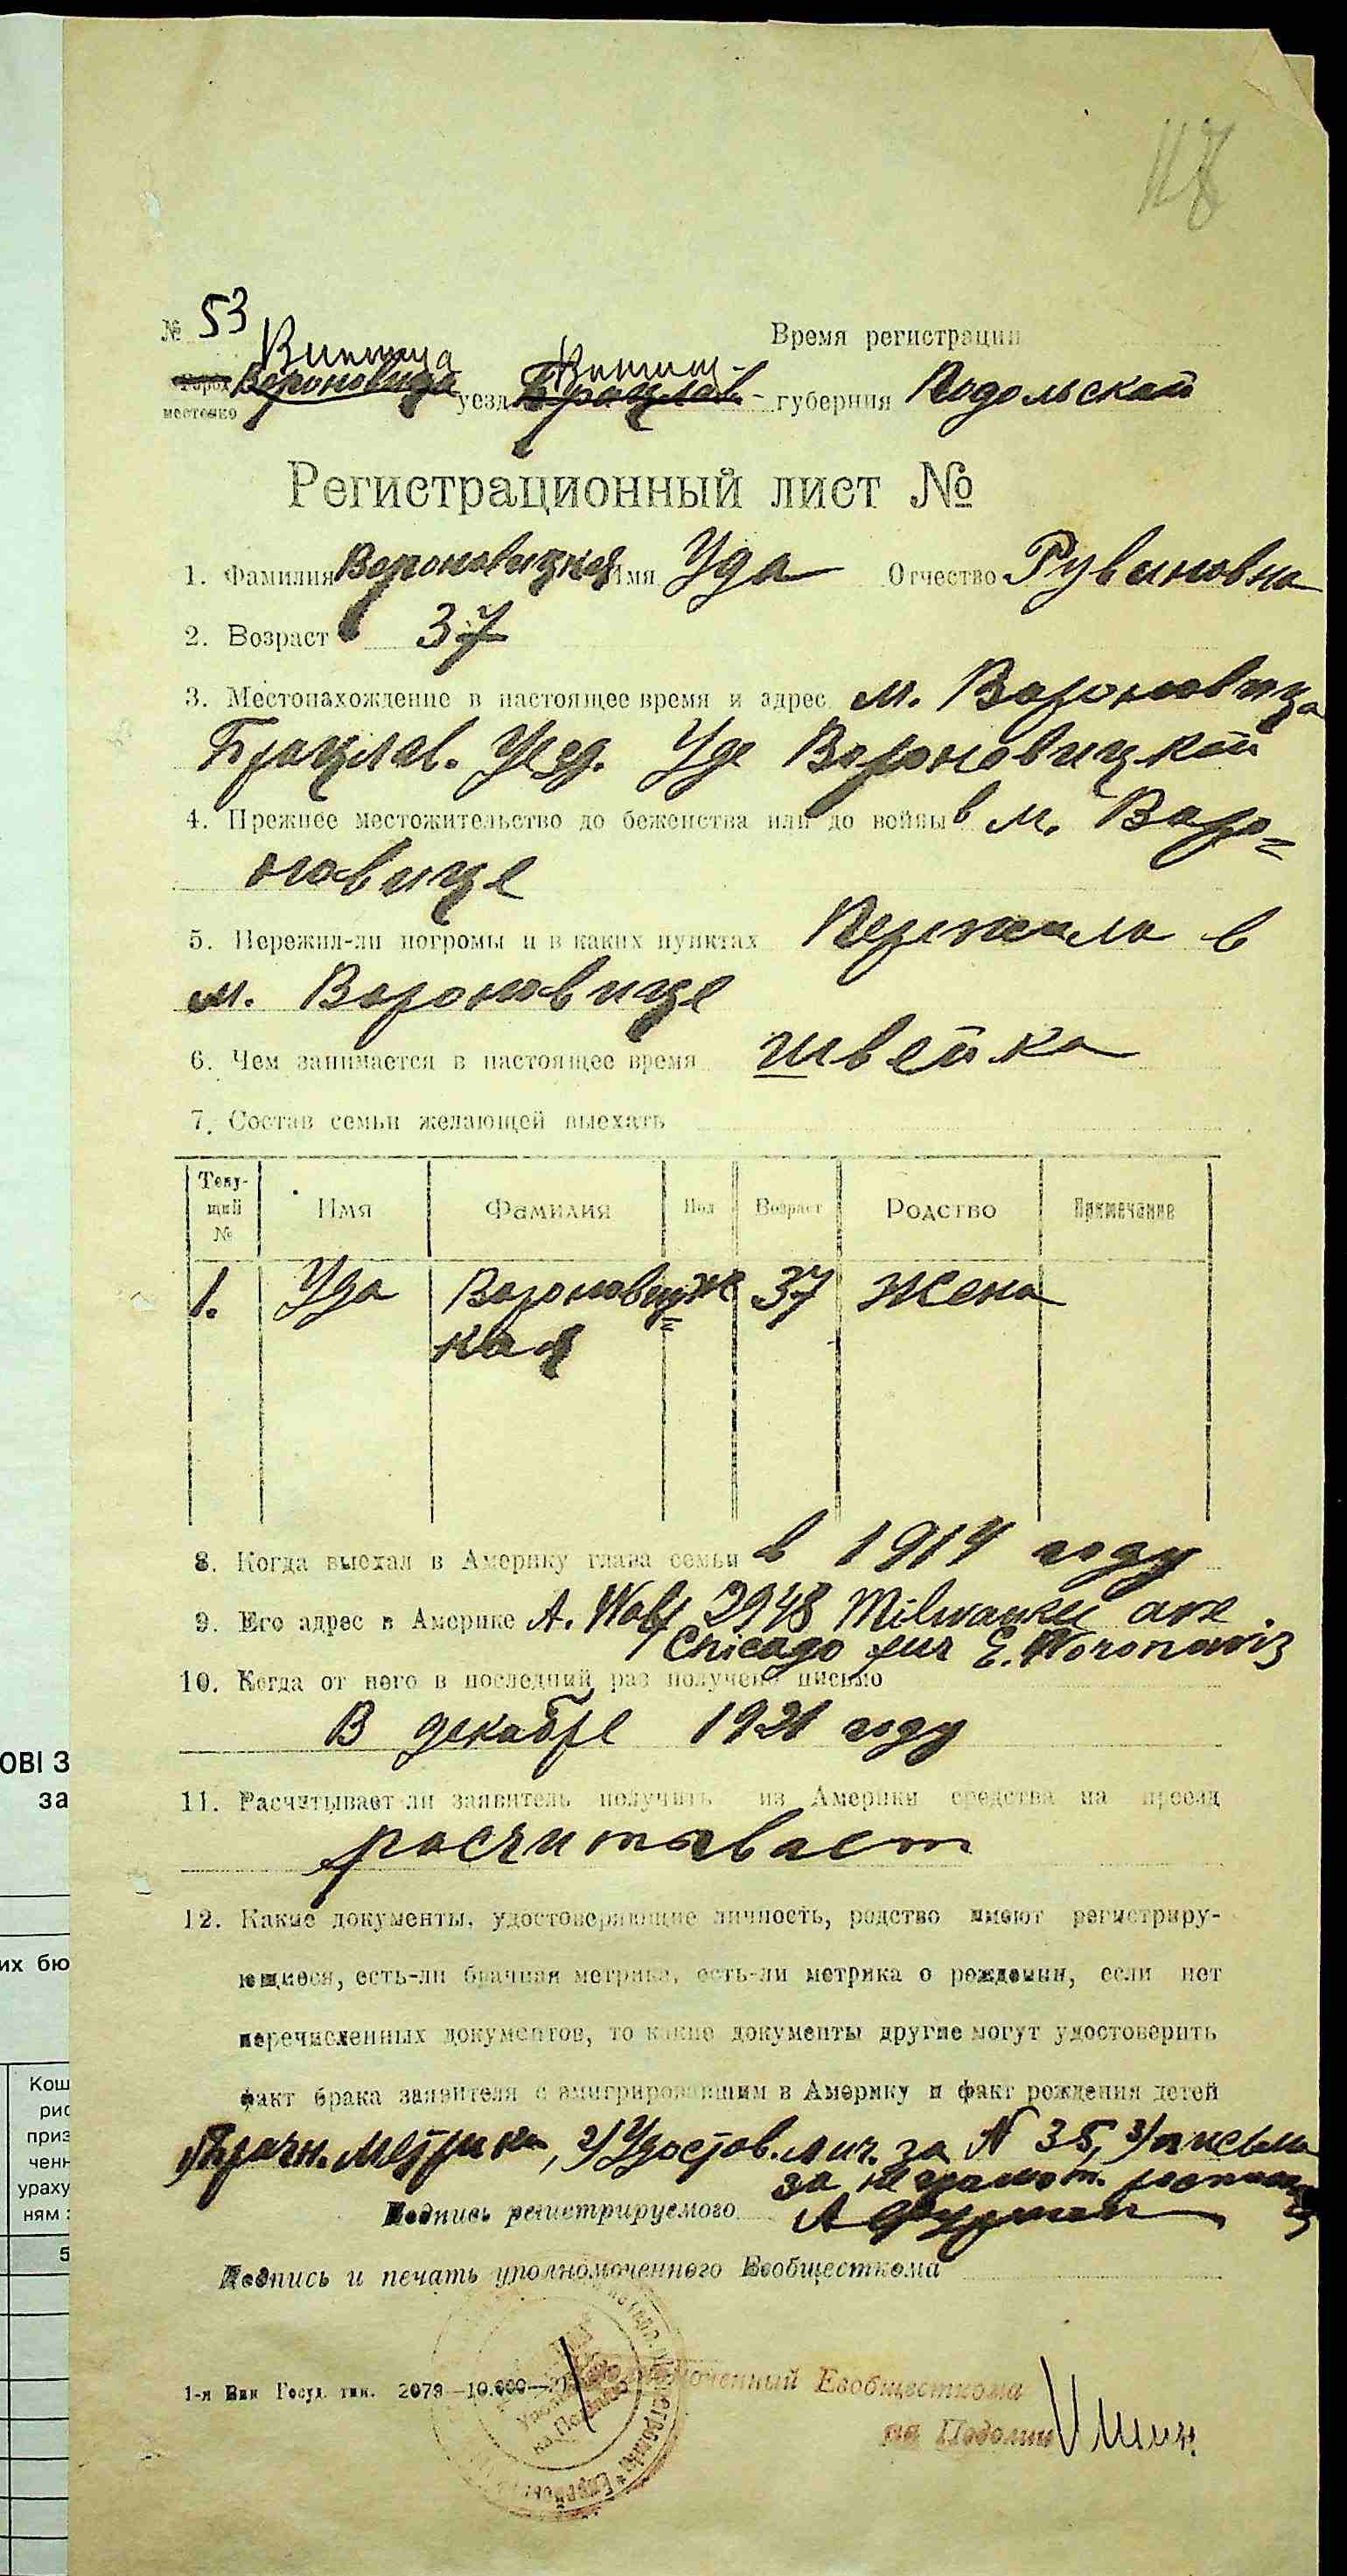 118
№ 53
Время регистрации
Винница Винниц-
Город Вороновица уезд Брацлав - губерния Подольской
местечко
Регистрационный лист №
1. Фамилия Вороновицкая Имя Уда Отчество Рувиновна
2. Возраст 37
3. Местонахождение в настоящее время и адрес м. Вороновица
Брацлав. Уезд. Уде Вороновицкой
4. Прежнее местожительство до беженства или до войны в м. Воро=
новице
5. Пережил-ли погромы и в каких пунктах Пережила в
м. Вороновице
6. Чем занимается в настоящее время швейка
7. Состав семьи желающей выехать
Теку-щий № Имя Фамилия Пол Возраст Родство Примечание
1. Уда Вороновиц= ж 37 Жена
кая
8. Когда выехал в Америку глава семьи в 1914 году
9. Его адрес в Америке A. Wolf 2948 Milwaukee ave.
Chicago fur E. Woronowiz
10. Когда от него в последний раз получено письмо
В декабре 1921 году
11. Расчитывает-ли заявитель получить из Америки средства на проезд
расчитывает
12. Какие документы, удостоверяющие личность, родство имеют регистриру-
ющиеся, есть-ли брачная метрика, есть-ли метрика о рождении, если нет
перечисленных документов, то какие документы другие могут удостоверить
факт брака заявителя с эмигрировавшим в Америку и факт рождения детей
1) Брачн. метрика, 2) Удостов. лич. за N 35, 3) письма
за неграмот.
Подпись регистрируемого А Фурман
Подпись и печать уполномоченного Евобщесткома
1-я Вин Госуд. тип. 2079—10.000—
Уполномоченный Евобщесткома
на Подолии
ОВІ З
за
их бю
Кош
рис
приз
ченн
ураху
ням
5